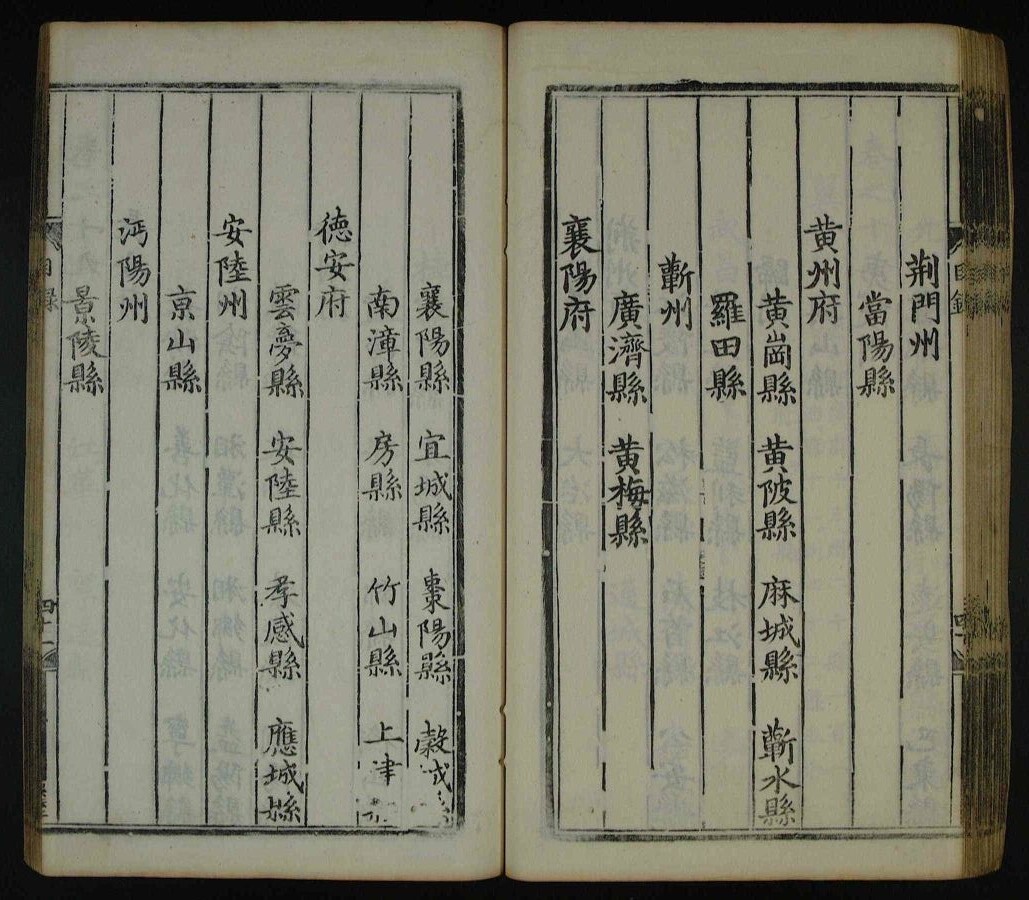 荆門州
當陽縣
黄州府
黄崗縣 黄陂縣 麻城縣 蘄水縣
羅田縣
蘄州
廣濟縣 黄梅縣
襄陽府
襄陽縣 宜城縣 棗陽縣 穀城
南漳縣 房縣 竹山縣 上津
德安府
雲夢縣 安陸縣 孝感縣 應城縣
安陸州
京山縣
沔陽州
景陵縣
目録